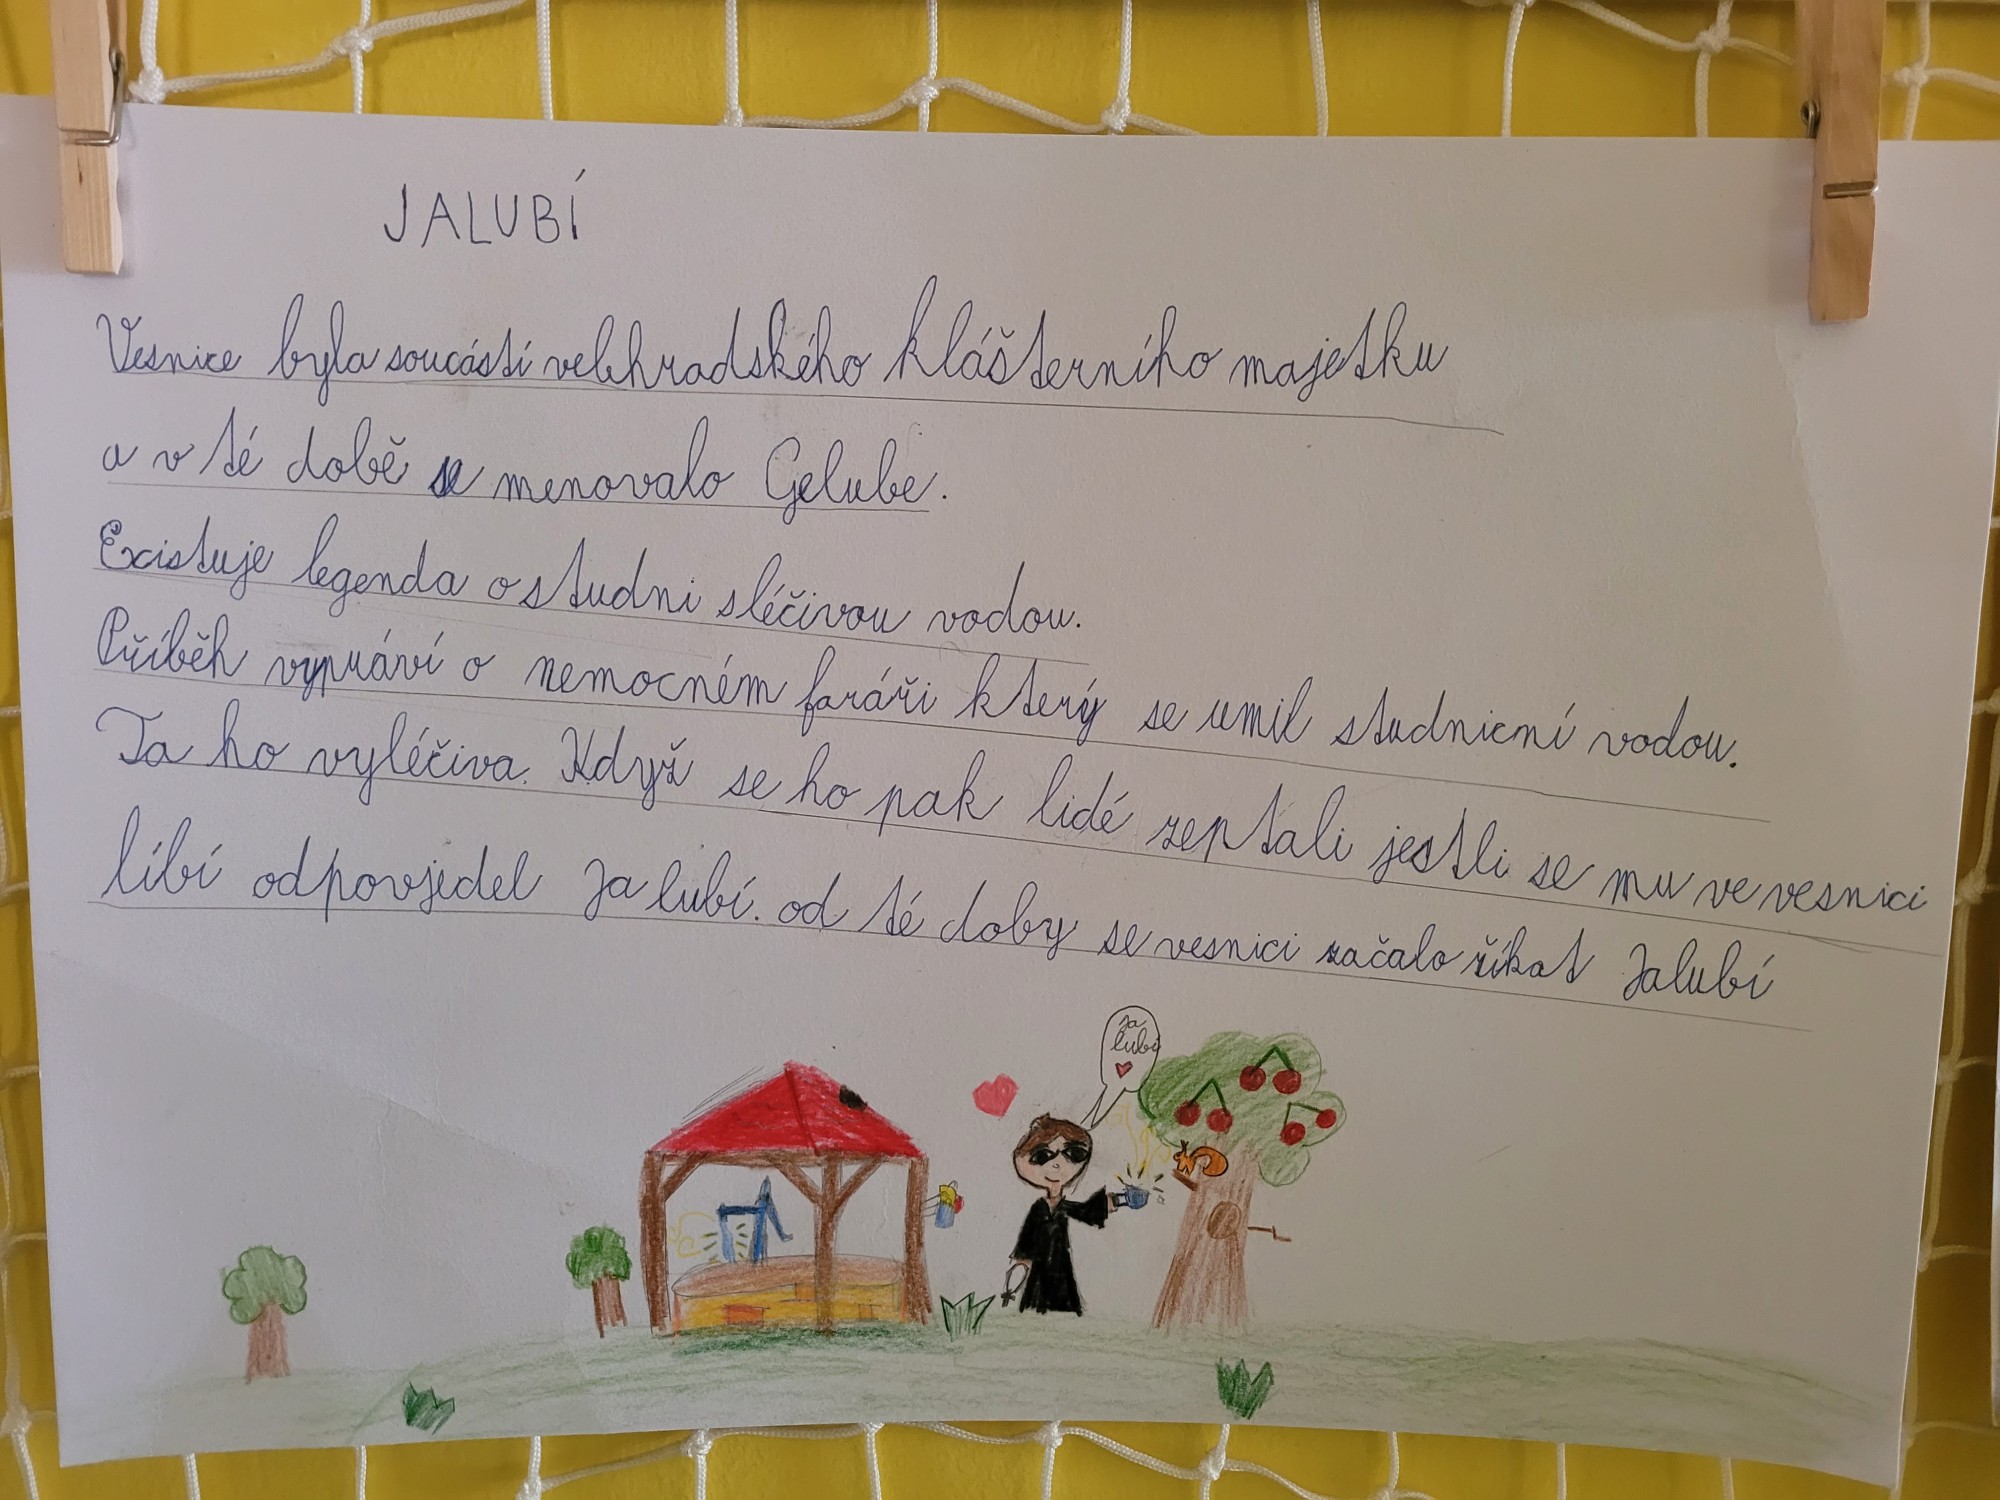 JALUBÍ
Vesnice byla soucástí velehradského klášterního majetku
a v té době se menovalo Gelube.
Existuje legenda o studni sléčivou vodou.
Příběh vypráví o nemocném faráři který se umil studnicní vodou.
Ta ho vyléčiva. Když se ho pak lidé zeptali jestli se mu ve vesnici
líbí odpovjedel Ja lubí. od té doby se vesnici začalo říkat Jalubí
Ja
lubí